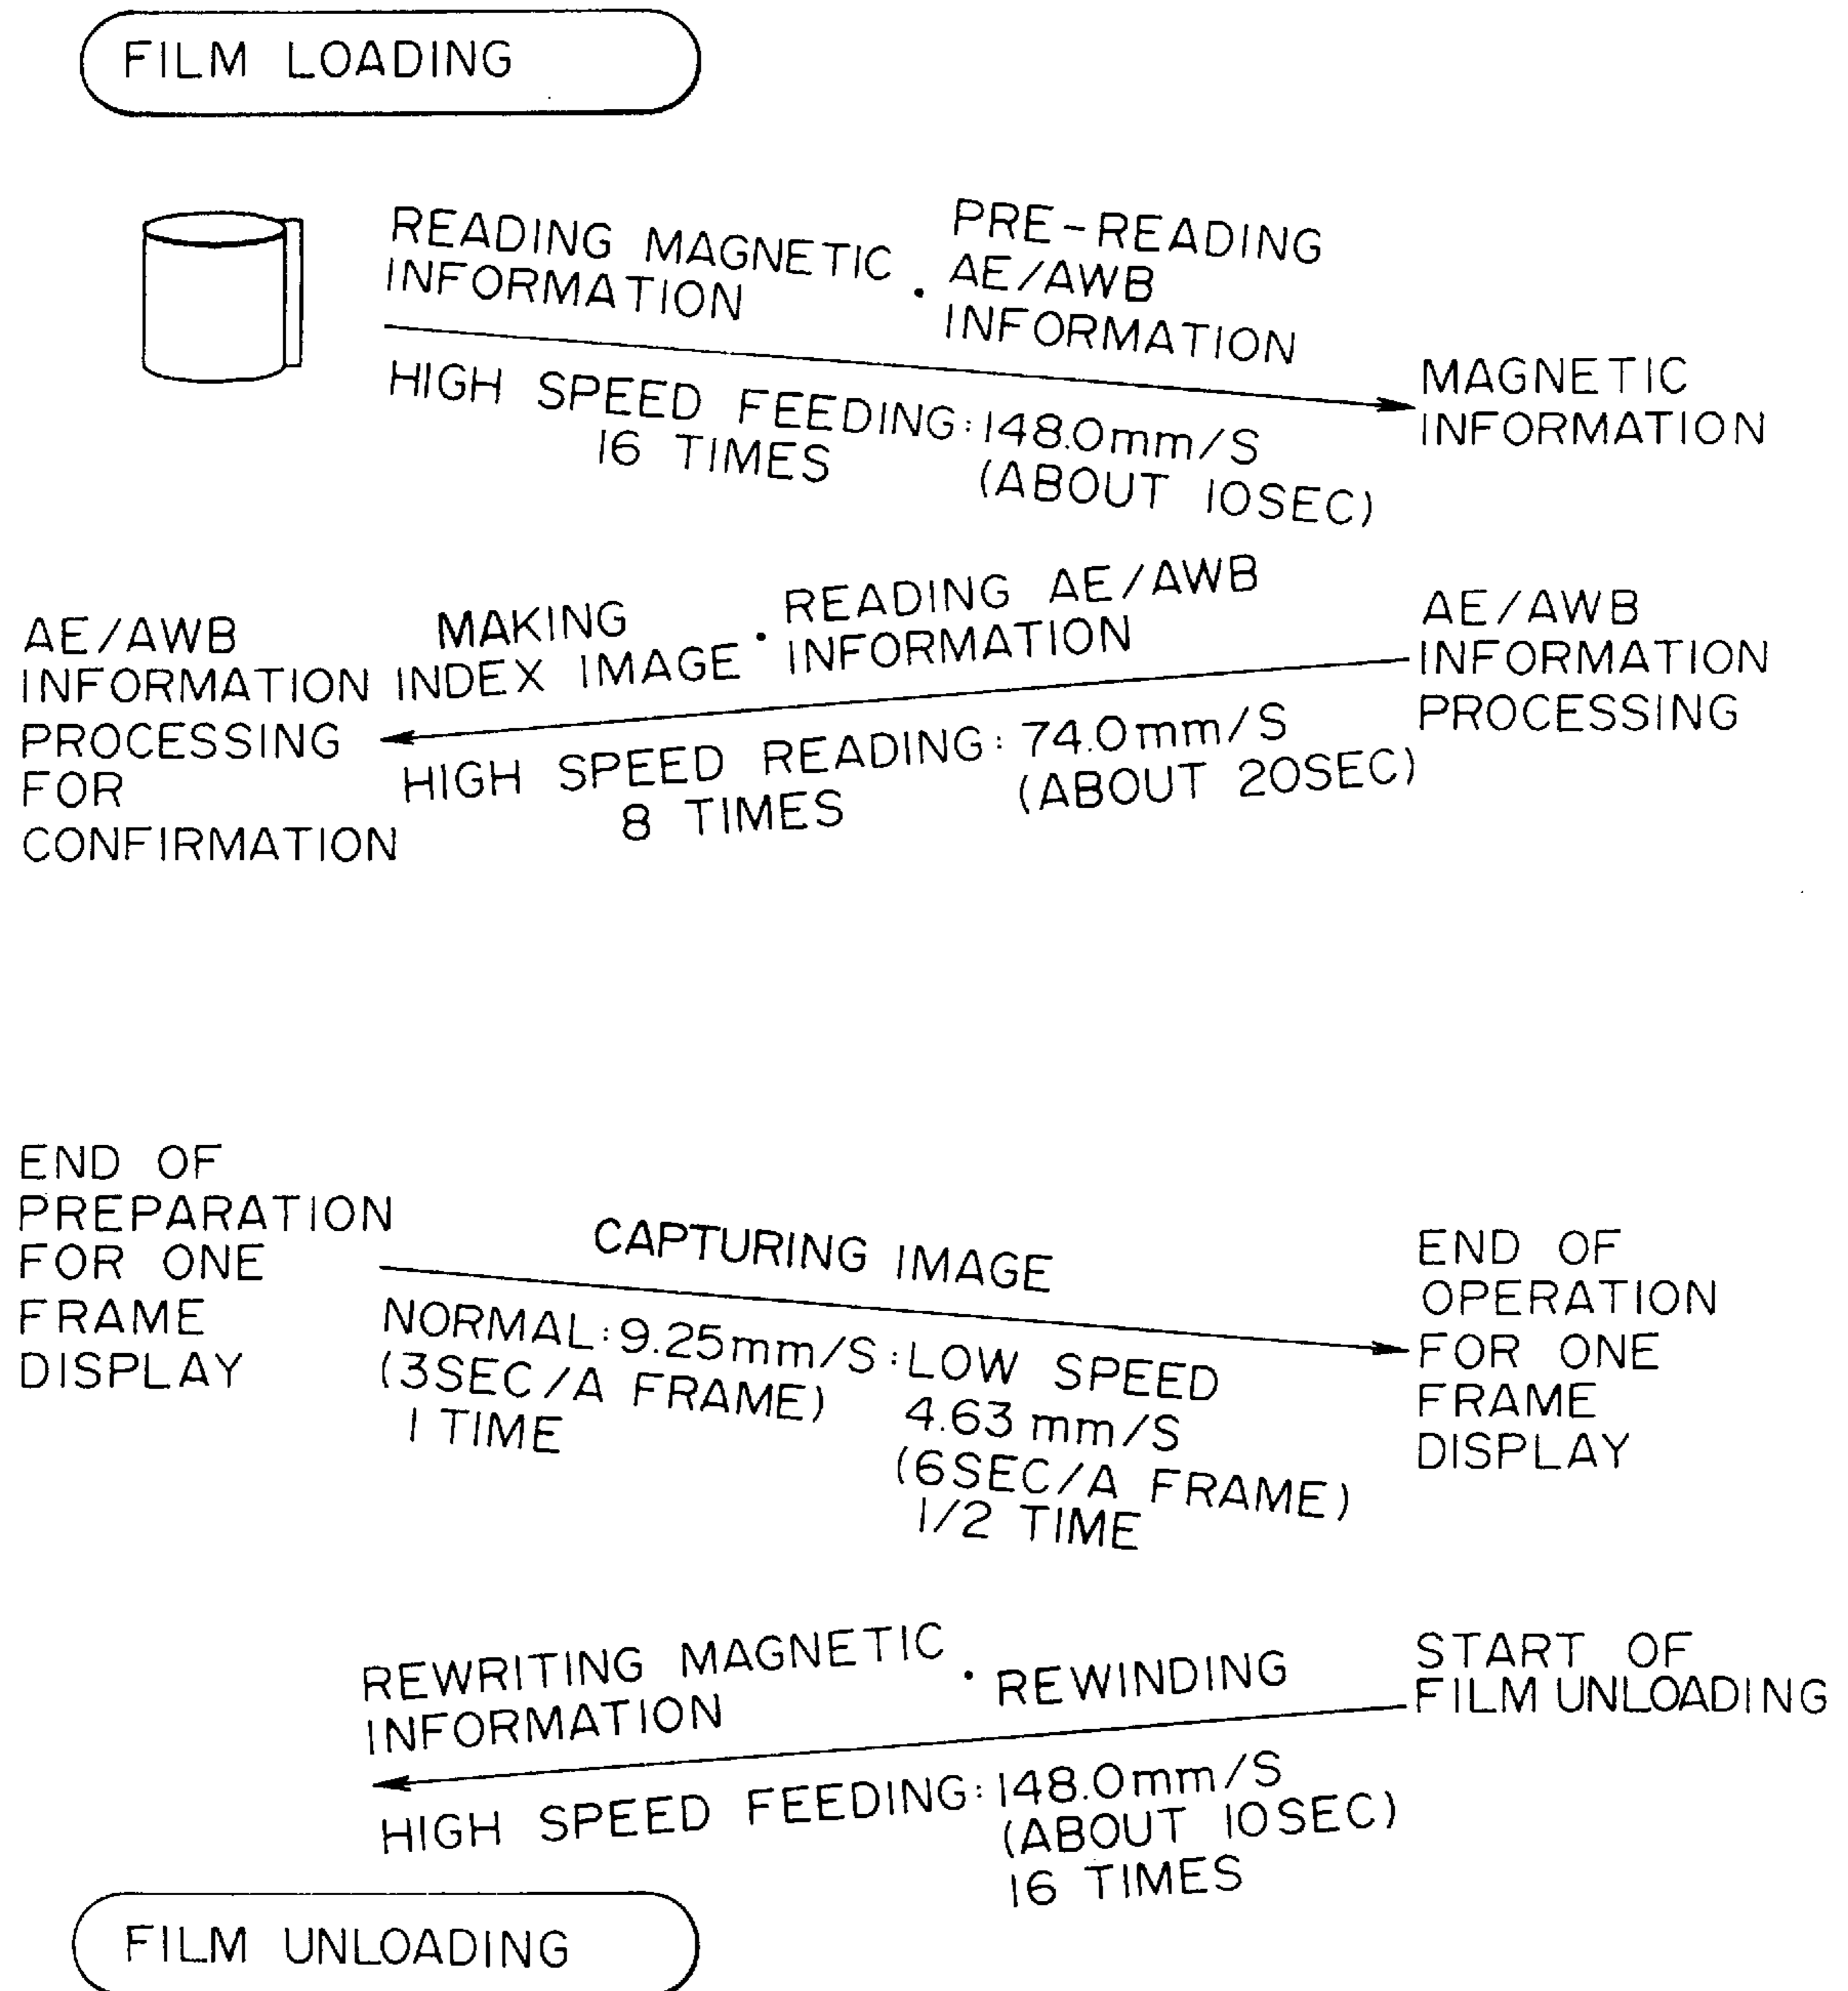 FILM LOADING
READING MAGNETIC
INFORMATION
·
PRE-READING
AE/AWB
INFORMATION
HIGH SPEED FEEDING:148.0mm/S
16 TIMES
(ABOUT 10SEC)
MAGNETIC
INFORMATION
AE/AWB
INFORMATION
PROCESSING
FOR
CONFIRMATION
MAKING
INDEX IMAGE
·
READING AE/AWB
INFORMATION
HIGH SPEED READING: 74.0mm/S
8 TIMES
(ABOUT 20SEC)
AE/AWB
INFORMATION
PROCESSING
END OF
PREPARATION
FOR ONE
FRAME
DISPLAY
CAPTURING IMAGE
NORMAL:9.25mm/S:LOW SPEED
(3SEC/A FRAME)
1 TIME
4.63 mm/S
(6SEC/A FRAME)
1/2 TIME
END OF
OPERATION
FOR ONE
FRAME
DISPLAY
REWRITING MAGNETIC
INFORMATION
· REWINDING
START OF
FILM UNLOADING
HIGH SPEED FEEDING:148.0mm/S
(ABOUT 10SEC)
16 TIMES
FILM UNLOADING